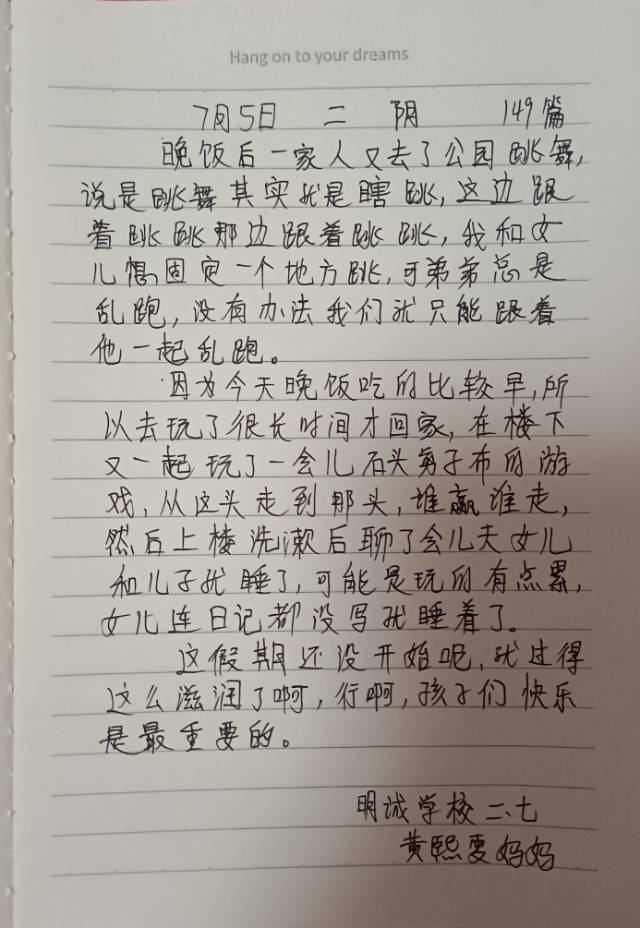 Hang on to your dreams
7月5日 二 阴 149篇
晚饭后一家人又去了公园跳舞,
说是跳舞其实就是瞎跳,这边跟
着跳跳那边跟着跳跳,我和女
儿想固定一个地方跳,可弟弟总是
乱跑,没有办法我们就只能跟着
他一起乱跑。
因为今天晚饭吃的比较早,所
以去玩了很长时间才回家,在楼下
又一起玩了一会儿石头剪子布的游
戏,从这头走到那头,谁赢谁走,
然后上楼洗漱后聊了会儿天女儿
和儿子就睡了,可能是玩的有点累,
女儿连日记都没写就睡着了。
这假期还没开始呢,就过得
这么滋润了啊,行啊,孩子们快乐
是最重要的。
明诚学校二、七
黄熙雯妈妈